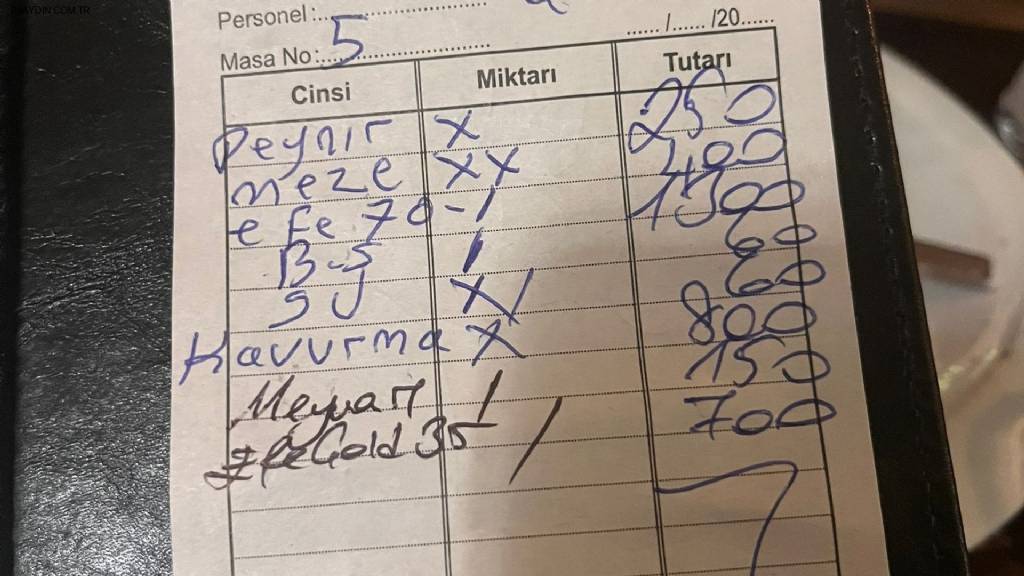 AYDIN.COM.TR
Personel:
Masa No: 5
....../....../20......
Cinsi Miktarı Tutarı
Peynir X 250
meze XX 400
efe 70-1 1300
B-S / 60
su X/ 60
Kavurma X 800
Meyvan / 150
Efe Gold 35 / 700